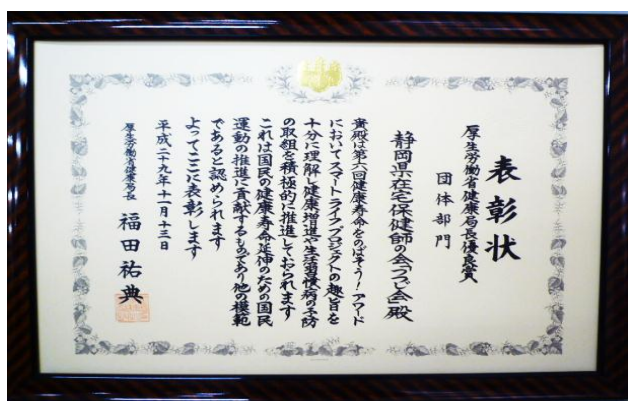 表彰状
厚生労働省健康局長優良賞
団体部門
静岡県在宅保健師の会「つつじ会」殿
貴殿は第六回健康寿命をのばそう!アワード
においてスマートライフプロジェクトの趣旨を
十分に理解し健康増進や生活習慣病の予防
の取組を積極的に推進しておられます
これは国民の健康寿命延伸のための国民
運動の推進に貢献するものであり他の模範
であると認められます
よってここに表彰します
平成二十九年十一月十三日
厚生労働省健康局長 福田祐典